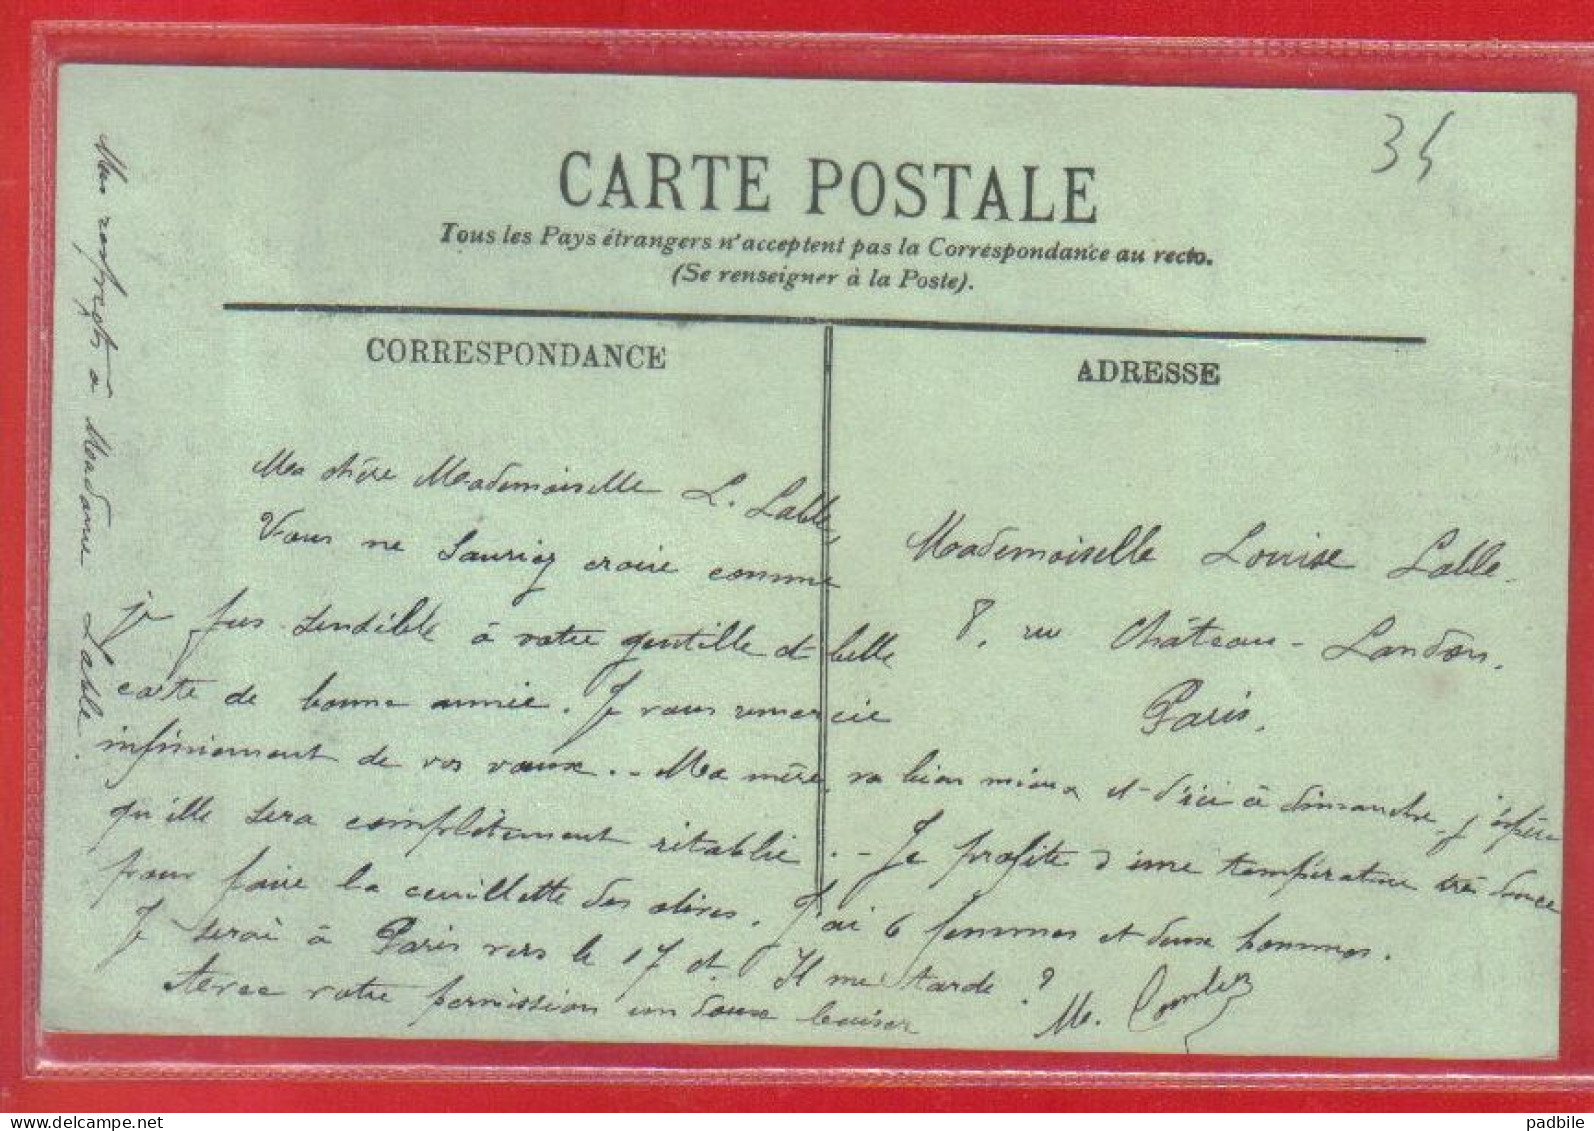 34
CARTE POSTALE
Tous les Pays étrangers n'acceptent pas la Correspondance au recto.
(Se renseigner à la Poste).
CORRESPONDANCE
ADRESSE
Ma chère Mademoiselle L. Lable,
Vous ne sauriez croire comme
je fus sensible à votre gentille et belle
carte de bonne année. Je vous remercie
infiniement de vos vœux. - Ma mère, va bien mieux et d'ici à dimanche, j'espère
qu'elle sera complètement rétablie. - Je profite d'une température très douce
pour faire la cueillette des olives. J'ai 6 femmes et deux hommes.
Je serai à Paris vers le 17 ct. Il me tarde ?
Avec votre permission un doux baiser
M. Combez
Mademoiselle Louise Lable.
8, rue Château-Landon.
Paris.
Mes respects à Madame Lable.
www.delcampe.net
padbile